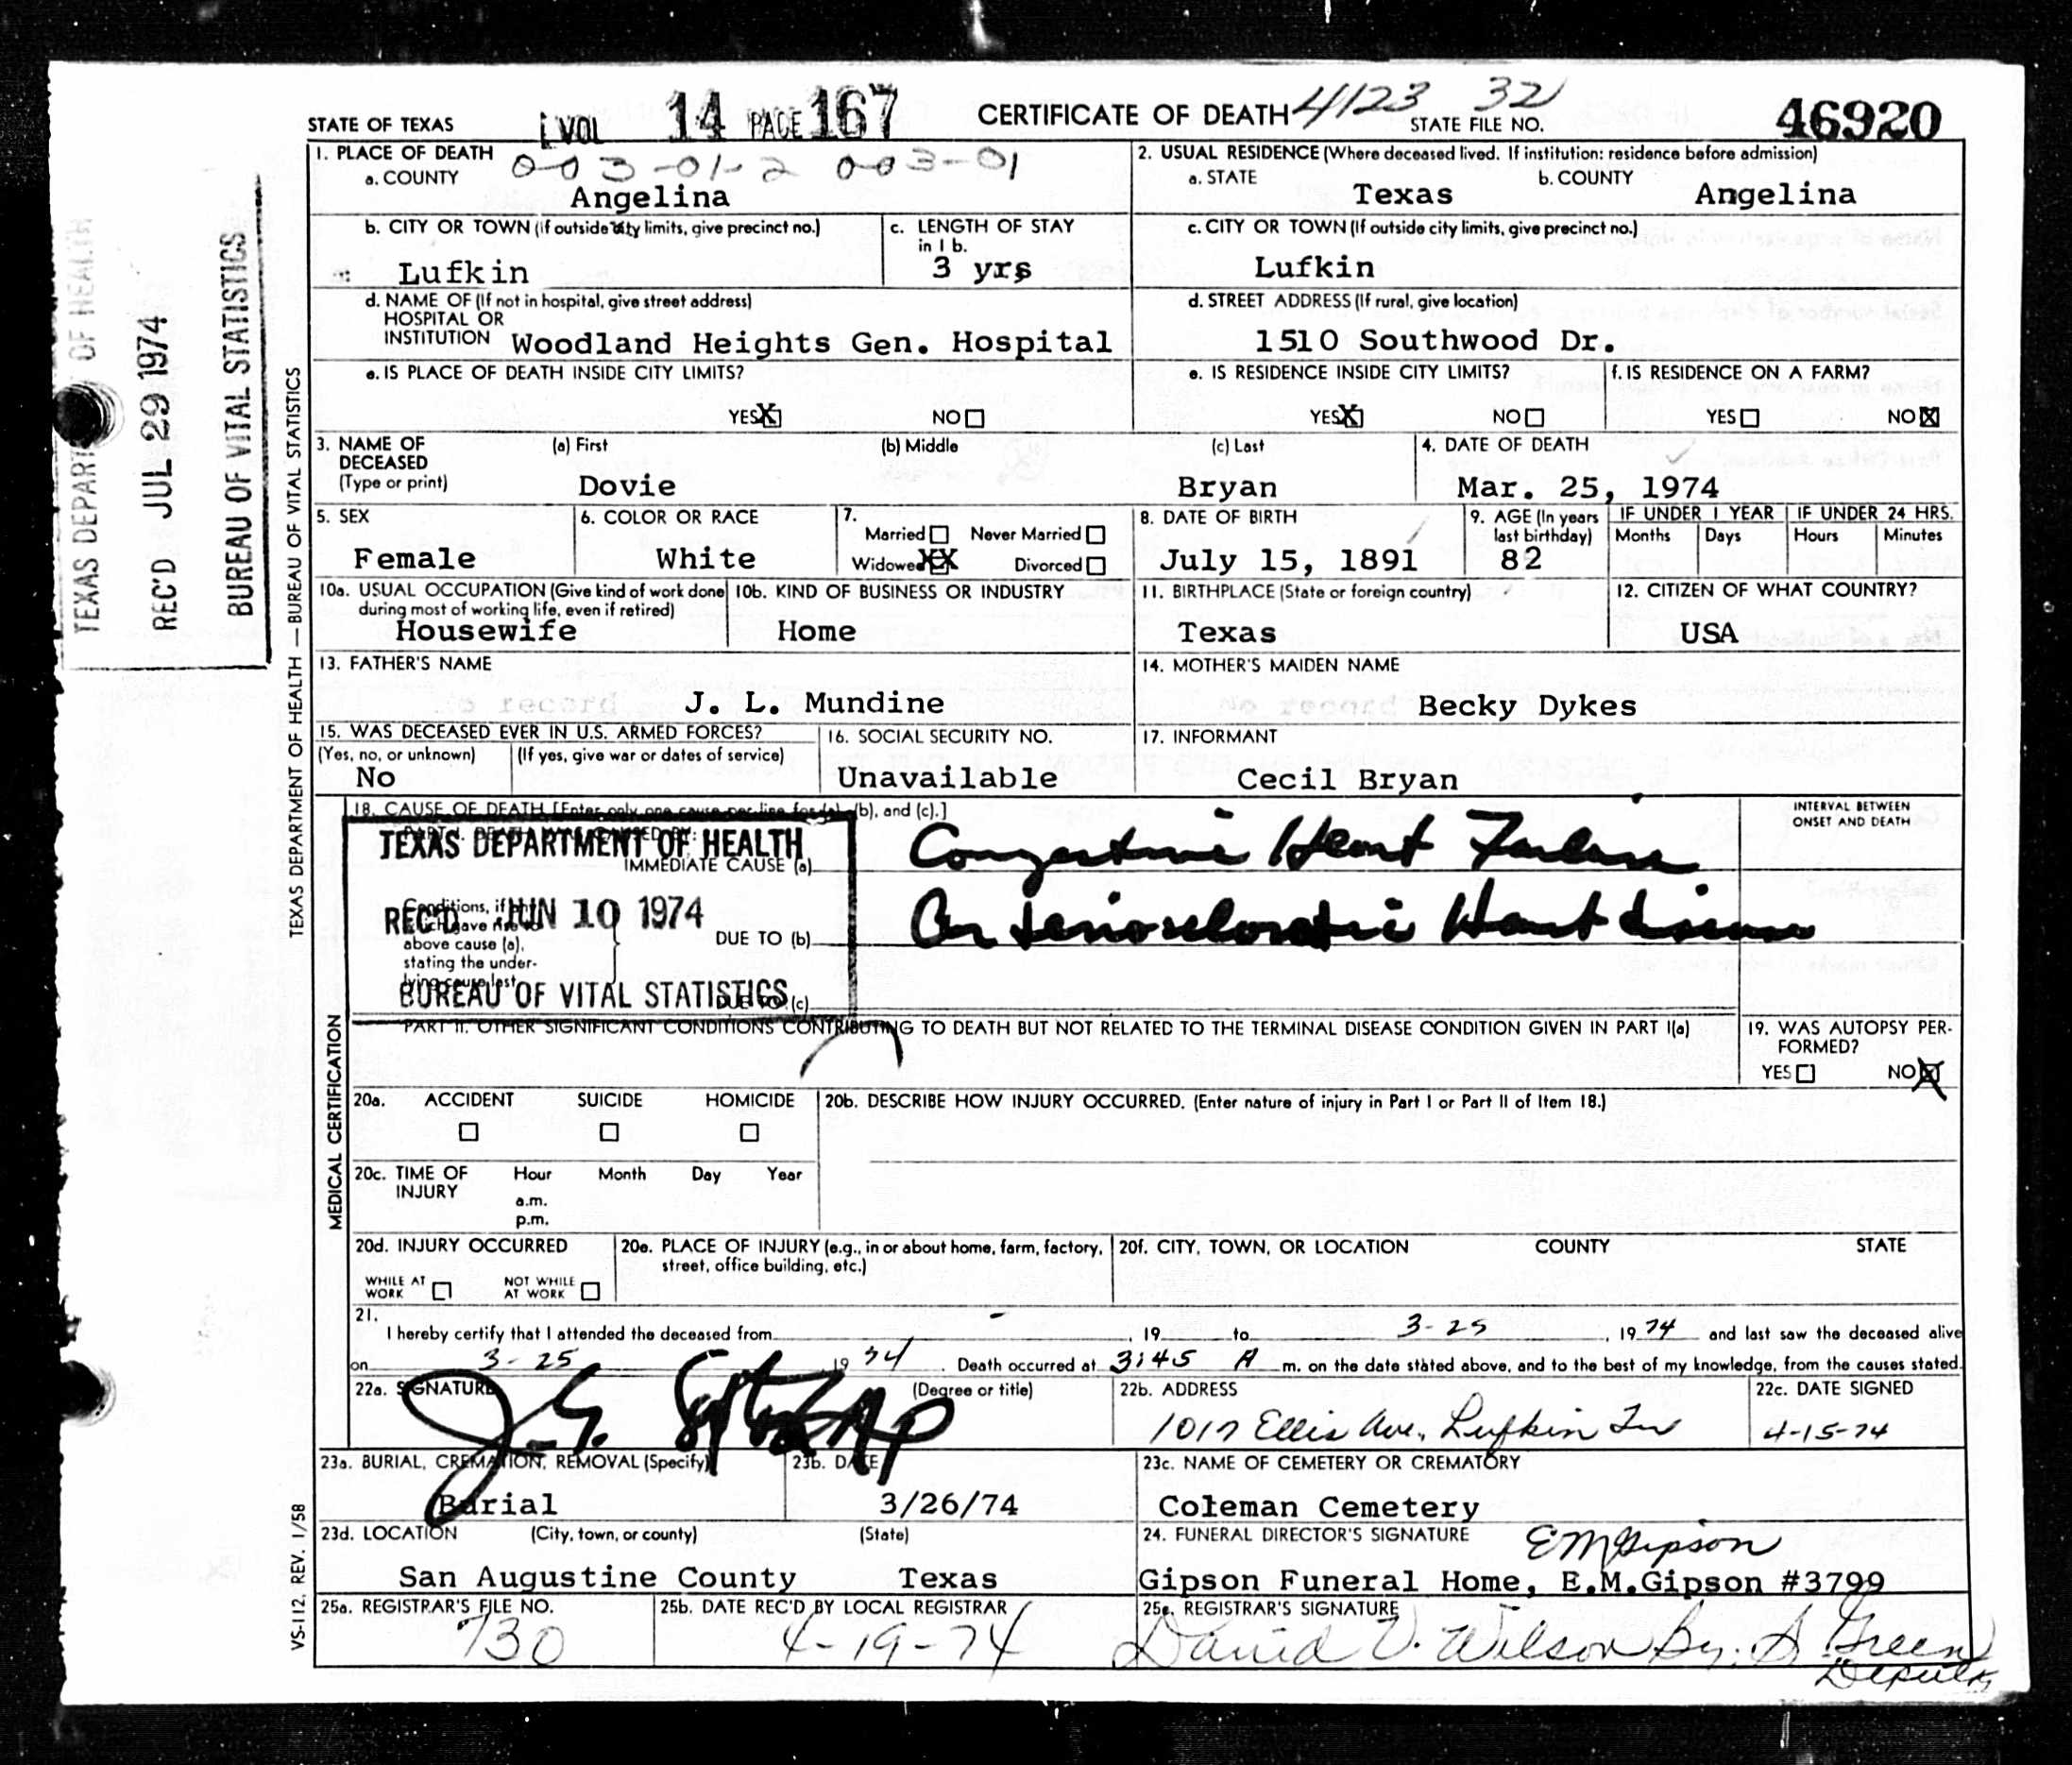 STATE OF TEXAS
VOL 14 PAGE 167
CERTIFICATE OF DEATH
4123 32
STATE FILE NO.
46920
1. PLACE OF DEATH
003-01-2 003-01
a. COUNTY
Angelina
2. USUAL RESIDENCE (Where deceased lived. If institution: residence before admission)
a. STATE
Texas
b. COUNTY
Angelina
b. CITY OR TOWN (if outside city limits, give precinct no.)
Lufkin
c. LENGTH OF STAY
in 1 b.
3 yrs
c. CITY OR TOWN (If outside city limits, give precinct no.)
Lufkin
d. NAME OF (If not in hospital, give street address)
HOSPITAL OR
INSTITUTION Woodland Heights Gen. Hospital
d. STREET ADDRESS (If rural, give location)
1510 Southwood Dr.
e. IS PLACE OF DEATH INSIDE CITY LIMITS?
YES X NO
e. IS RESIDENCE INSIDE CITY LIMITS?
YES X NO
f. IS RESIDENCE ON A FARM?
YES NO X
3. NAME OF
DECEASED
(Type or print)
(a) First
Dovie
(b) Middle
(c) Last
Bryan
4. DATE OF DEATH
Mar. 25, 1974
5. SEX
Female
6. COLOR OR RACE
White
7.
Married Never Married
Widowed XX Divorced
8. DATE OF BIRTH
July 15, 1891
9. AGE (In years
last birthday)
82
IF UNDER 1 YEAR
Months Days
IF UNDER 24 HRS.
Hours Minutes
10a. USUAL OCCUPATION (Give kind of work done
during most of working life, even if retired)
Housewife
10b. KIND OF BUSINESS OR INDUSTRY
Home
11. BIRTHPLACE (State or foreign country)
Texas
12. CITIZEN OF WHAT COUNTRY?
USA
13. FATHER'S NAME
J. L. Mundine
14. MOTHER'S MAIDEN NAME
Becky Dykes
15. WAS DECEASED EVER IN U.S. ARMED FORCES?
(Yes, no, or unknown) (If yes, give war or dates of service)
No
16. SOCIAL SECURITY NO.
Unavailable
17. INFORMANT
Cecil Bryan
18. CAUSE OF DEATH [Enter only one cause per line for (a), (b), and (c).]
PART I. DEATH WAS CAUSED BY:
IMMEDIATE CAUSE (a)
Congestive Heart Failure
Conditions, if any
which gave rise to
above cause (a),
stating the under-
lying cause last.
DUE TO (b)
Arteriosclerotic Heart disease
DUE TO (c)
INTERVAL BETWEEN
ONSET AND DEATH
TEXAS DEPARTMENT OF HEALTH
REC'D JUN 10 1974
BUREAU OF VITAL STATISTICS
PART II. OTHER SIGNIFICANT CONDITIONS CONTRIBUTING TO DEATH BUT NOT RELATED TO THE TERMINAL DISEASE CONDITION GIVEN IN PART I(a)
19. WAS AUTOPSY PER-
FORMED?
YES NO X
20a. ACCIDENT SUICIDE HOMICIDE
20b. DESCRIBE HOW INJURY OCCURRED. (Enter nature of injury in Part I or Part II of Item 18.)
20c. TIME OF
INJURY
Hour Month Day Year
a.m.
p.m.
20d. INJURY OCCURRED
WHILE AT
WORK
NOT WHILE
AT WORK
20e. PLACE OF INJURY (e.g., in or about home, farm, factory,
street, office building, etc.)
20f. CITY, TOWN, OR LOCATION COUNTY STATE
21.
I hereby certify that I attended the deceased from - , 19 to 3-25 , 19 74 and last saw the deceased alive
on 3-25 19 74 . Death occurred at 3:45 A m. on the date stated above, and to the best of my knowledge, from the causes stated.
22a. SIGNATURE
(Degree or title)
22b. ADDRESS
1017 Ellis Ave., Lufkin
22c. DATE SIGNED
4-15-74
23a. BURIAL, CREMATION, REMOVAL (Specify)
Burial
23b. DATE
3/26/74
23c. NAME OF CEMETERY OR CREMATORY
Coleman Cemetery
23d. LOCATION (City, town, or county) (State)
San Augustine County Texas
24. FUNERAL DIRECTOR'S SIGNATURE
EMGipson
Gipson Funeral Home, E.M.Gipson #3799
25a. REGISTRAR'S FILE NO.
730
25b. DATE REC'D BY LOCAL REGISTRAR
4-19-74
25c. REGISTRAR'S SIGNATURE
David V. Wilson By. S Green
Deputy
TEXAS DEPARTMENT OF HEALTH
REC'D JUL 29 1974
BUREAU OF VITAL STATISTICS
TEXAS DEPARTMENT OF HEALTH — BUREAU OF VITAL STATISTICS
MEDICAL CERTIFICATION
VS-112. REV. 1/58